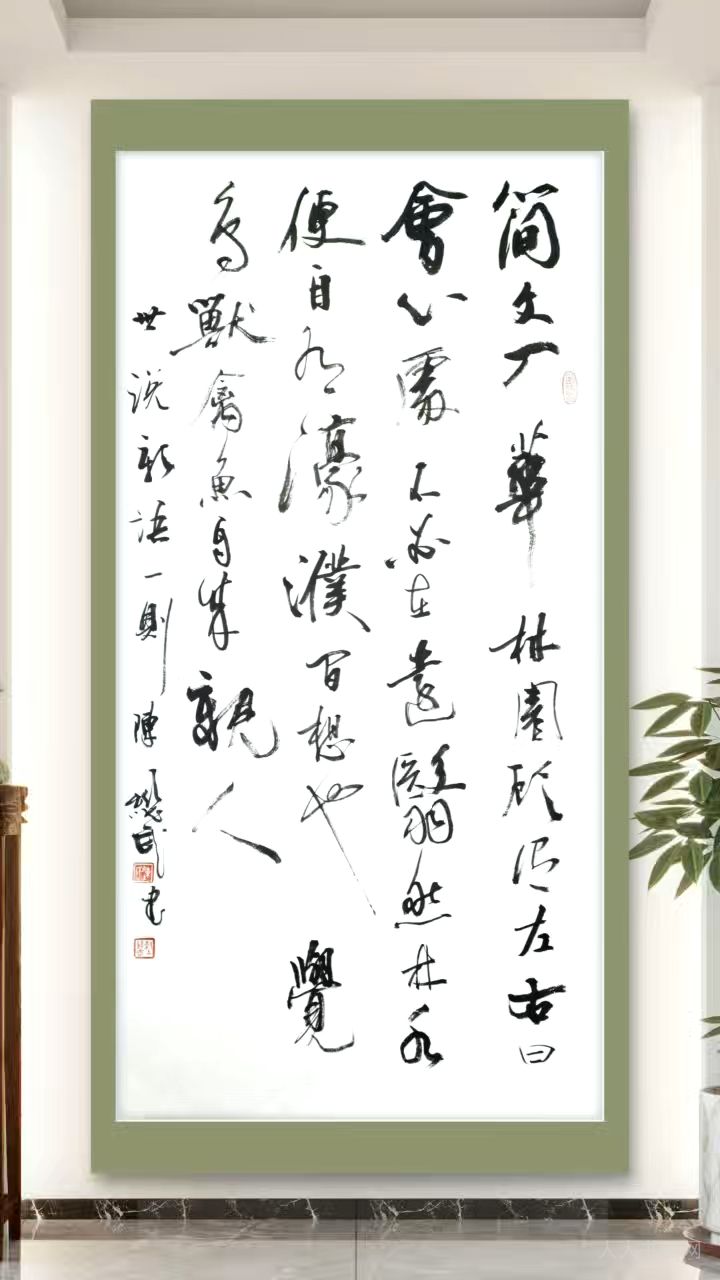 簡文入華林園顧謂左右曰
會心處不必在遠翳然林水
便自有濠濮間想也覺
鳥獸禽魚自來親人
世説新語一則 陳懋武書